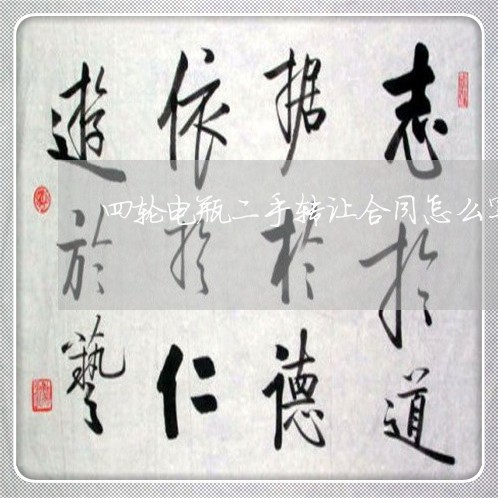 志於道
据於德
依於仁
遊於藝
四轮电瓶二手转让合同怎么